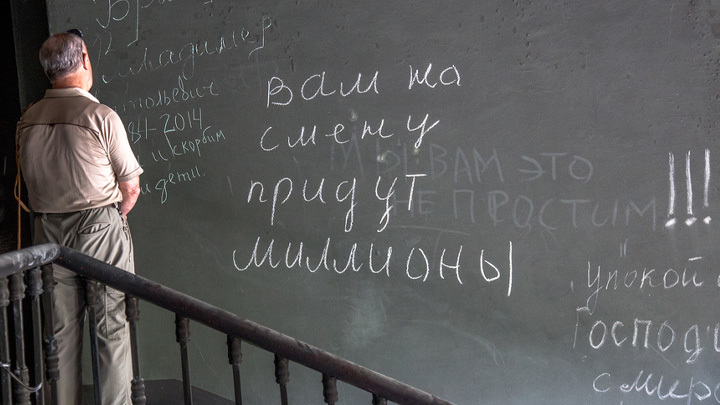 Владимир
тольевич
84-2014
и скорбим
и дети.
вам на
смену
придут
миллионы
МЫ ВАМ ЭТО
НЕ ПРОСТИМ !!!
упокой
Господи